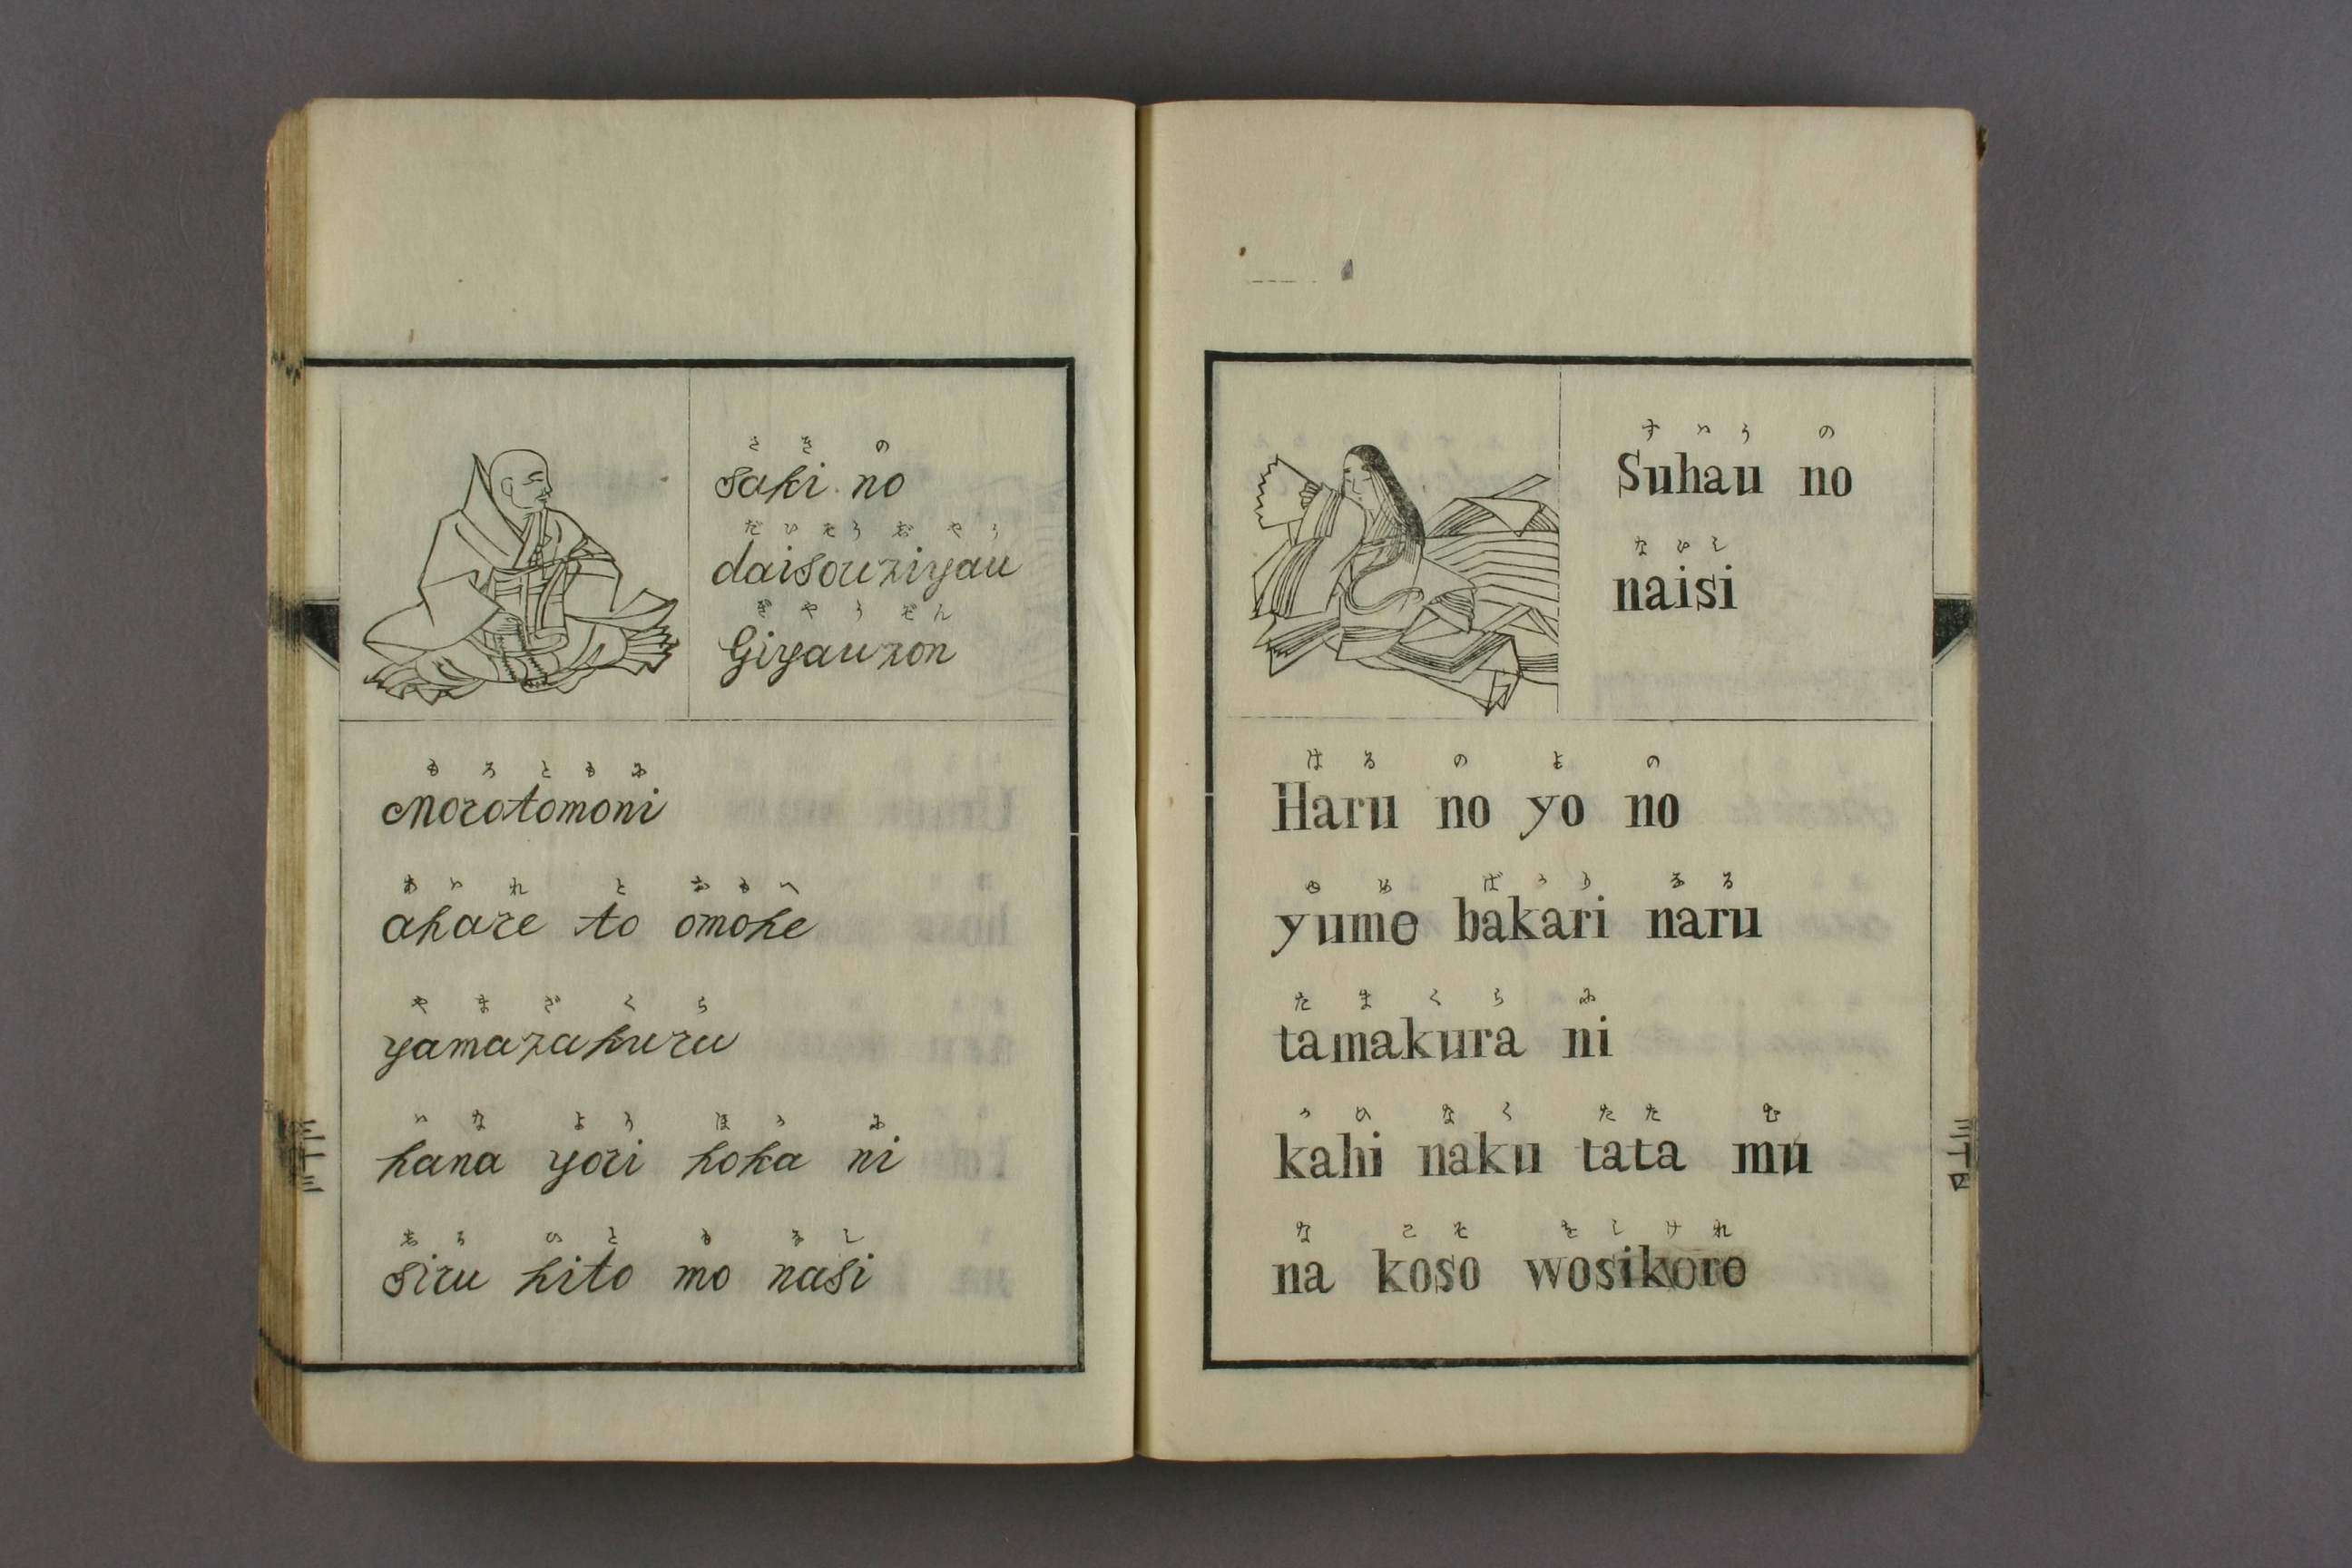 さきの
saki no
だいそうじやう
daisouziyau
ぎやうぞん
Giyauzon
もろともに
Morotomoni
あはれ と おもへ
ahare to omohe
やまざくら
yamazakuru
はな より ほか に
hana yori hoka ni
しる ひと も なし
siru hito mo nasi
三十三
すはう の
Suhau no
ないし
naisi
はる の よ の
Haru no yo no
ゆめ ばかり なる
yume bakari naru
たまくら に
tamakura ni
かひ なく たた む
kahi naku tata mu
な こそ をしけれ
na koso wosikere
三十四